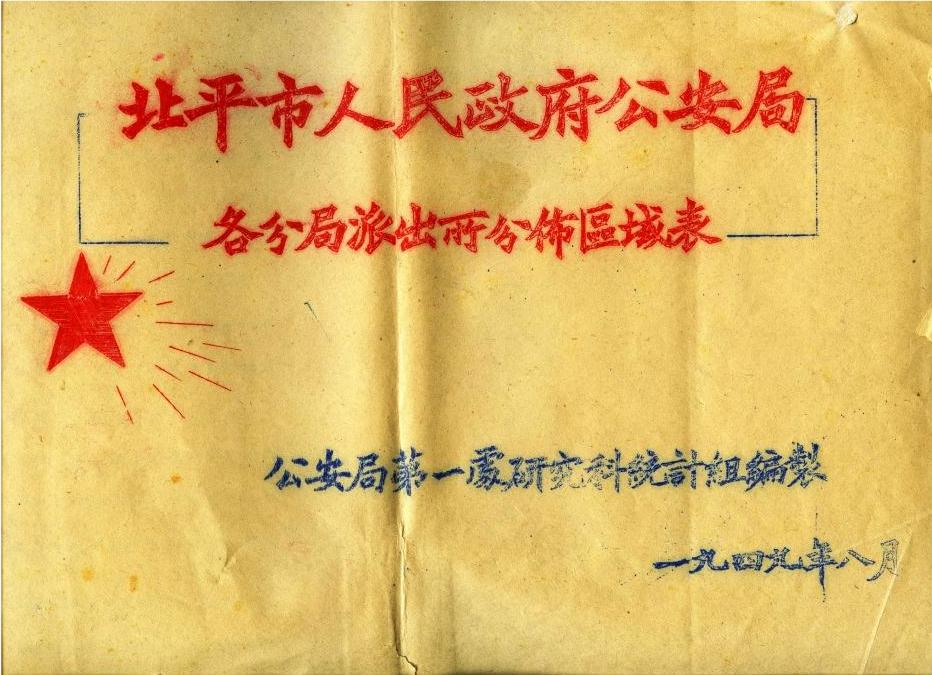 北平市人民政府公安局
各分局派出所分佈區域表
公安局第一處研究科統計組編製
一九四九年八月